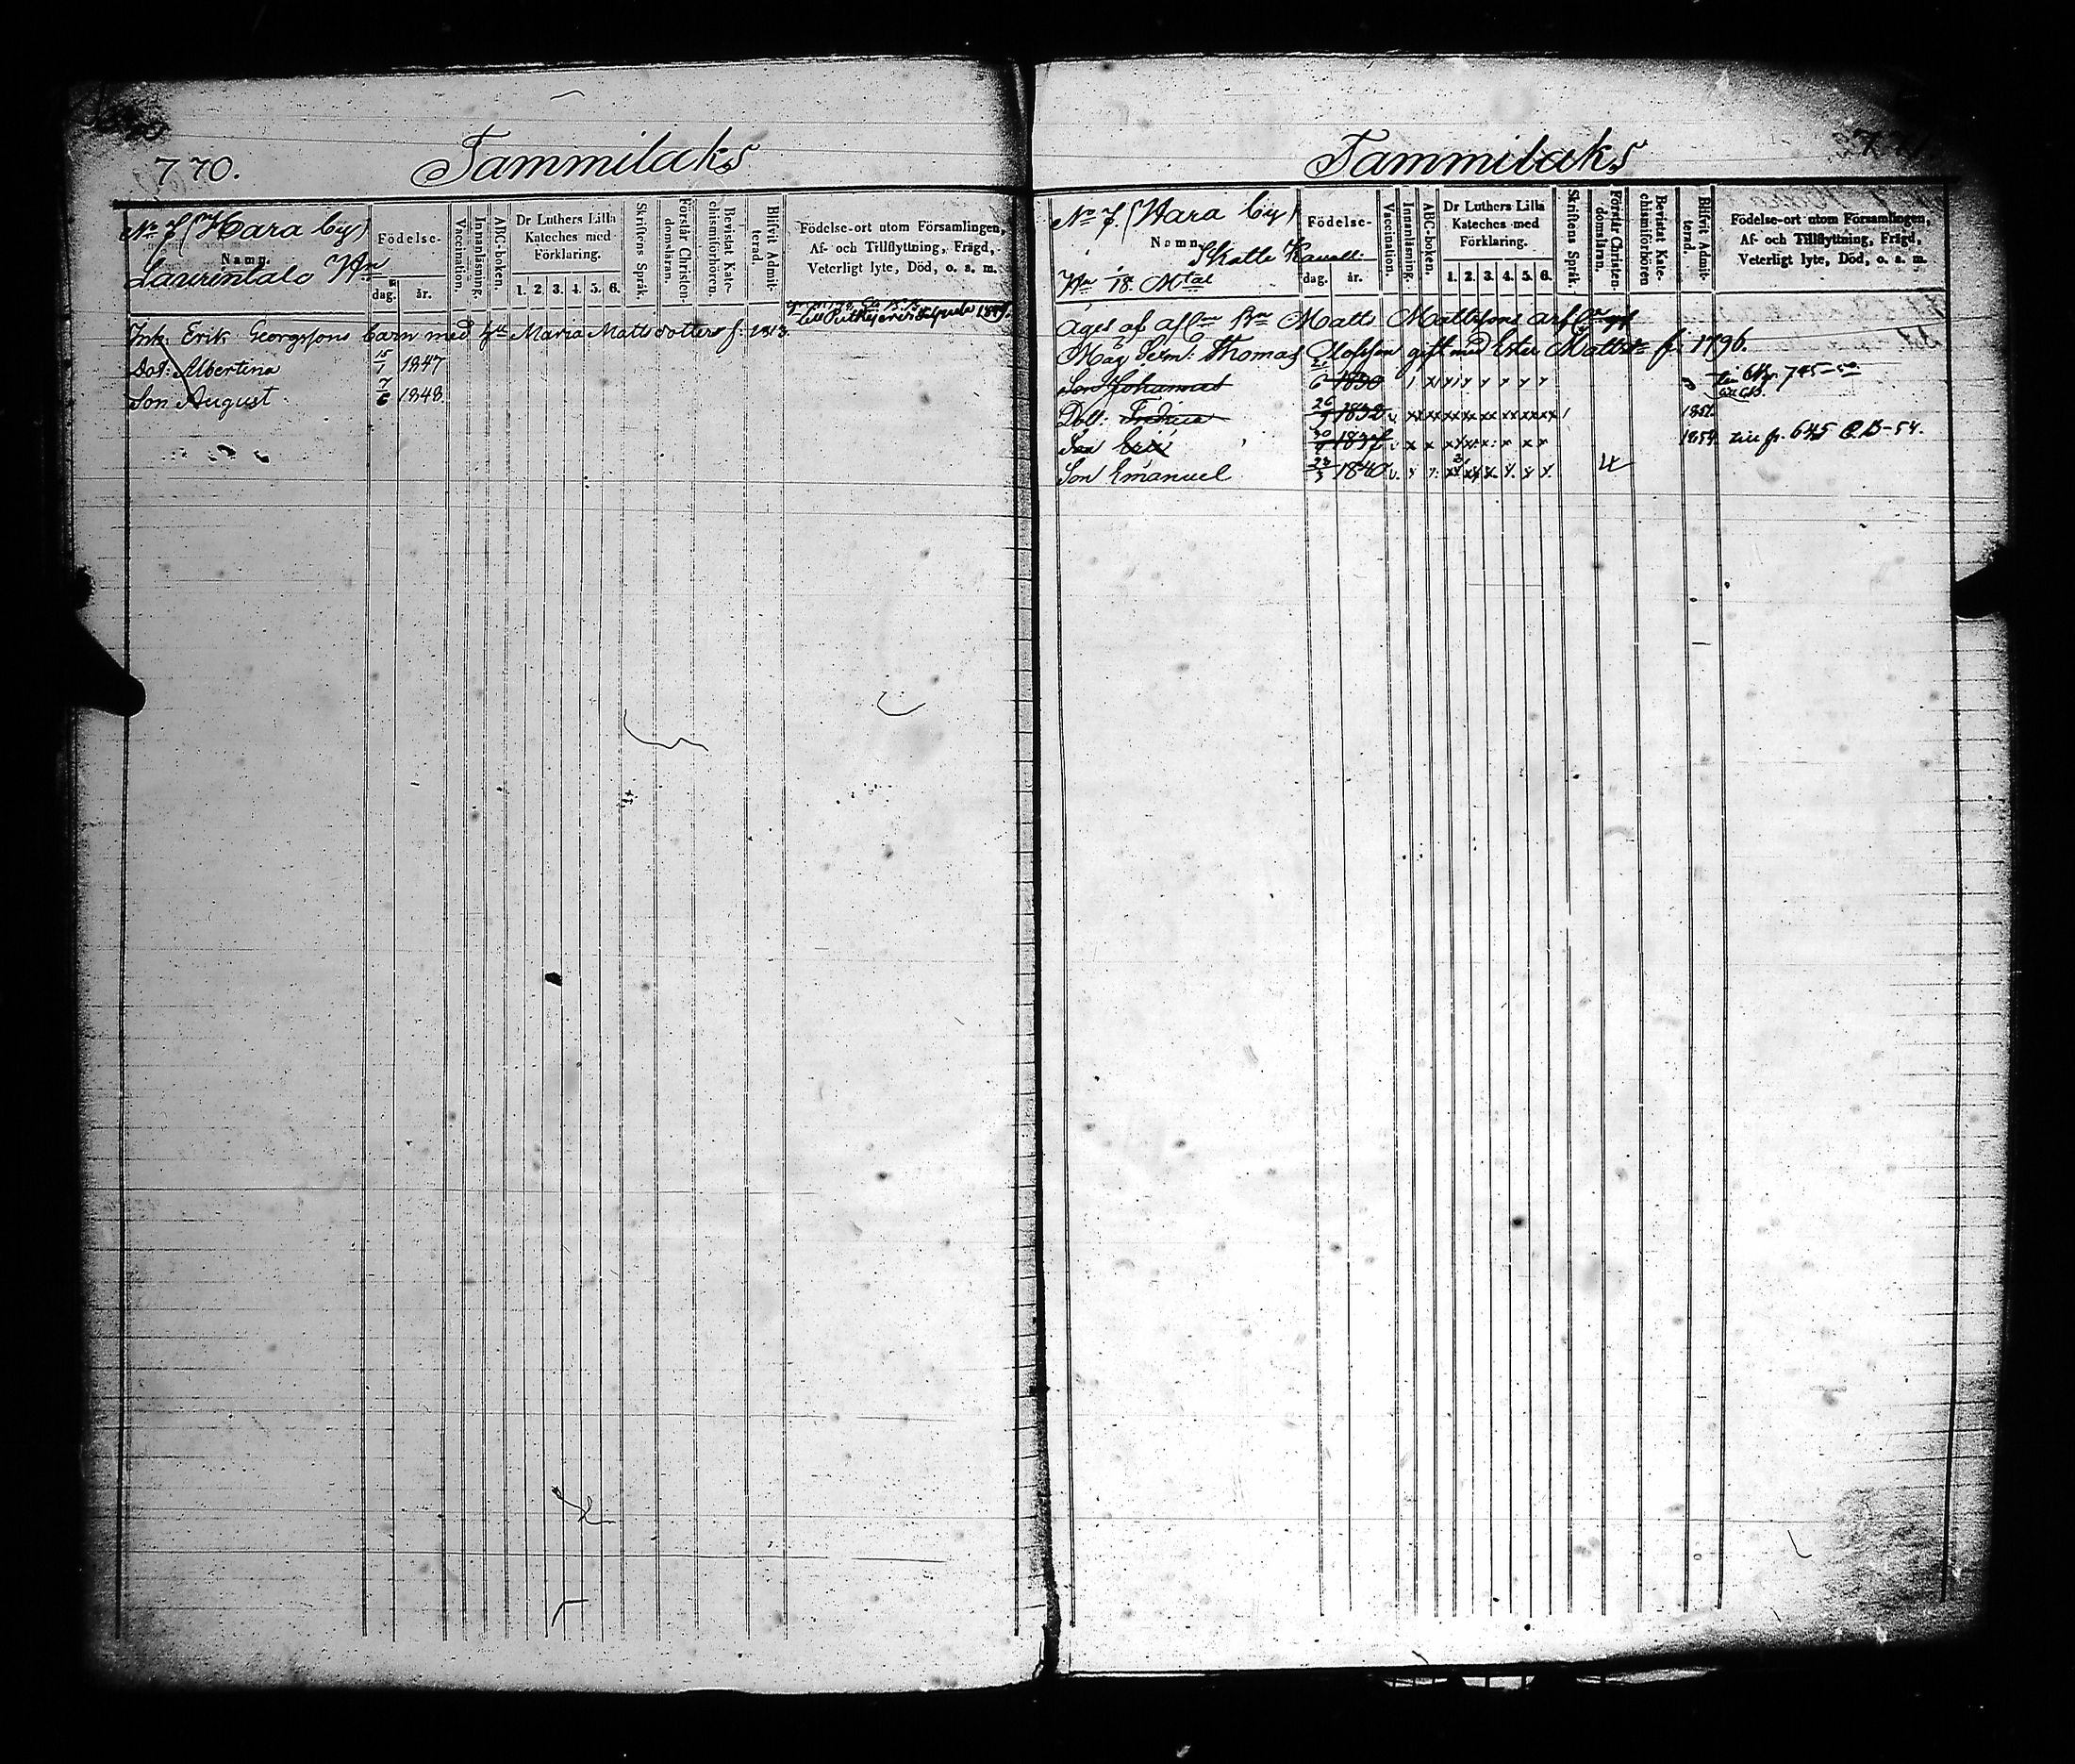 770.
Tammilaks
No 7 (Wara by)
Namn.
Laurintalo
Födelse-
dag.
år.
Vaccination.
Innanläsning.
ABC-boken.
Dr Luthers Lilla
Kateches med
Förklaring.
1. 2. 3. 4. 5. 6.
Skriftens Språk.
Förstår Christen-
domsläran.
Bevistat Kate-
chismiförhören.
Blifvit Admit-
terad.
Födelse-ort utom Församlingen,
Af- och Tillflyttning, Frägd,
Veterligt lyte, Död, o. a. m.
Erik Georgssons barn med Maria Matts dotter f. 1813.
Dot: Albertina 15/1 1847
Son August 7/6 1848
771.
Tammilaks
No 7. (Wara by)
Namn.
Skatte
18. Mtal
Födelse-
dag.
år.
Vaccination.
Innanläsning.
ABC-boken.
Dr Luthers Lilla
Kateches med
Förklaring.
1. 2. 3. 4. 5. 6.
Skriftens Språk.
Förstår Christen-
domsläran.
Bevistat Kate-
chismiförhören
Blifvit Admit-
terad.
Födelse-ort utom Församlingen,
Af- och Tillflyttning, Frägd,
Veterligt lyte, Död, o. a. m.
Äges af Matts Mattssons
Måg Thomas Olofsson gift med Ester f. 1796.
Son Johannes 1830
Dott: 1832
Son Eric 645 C.B-54.
Son Emanuel 23/3 1840